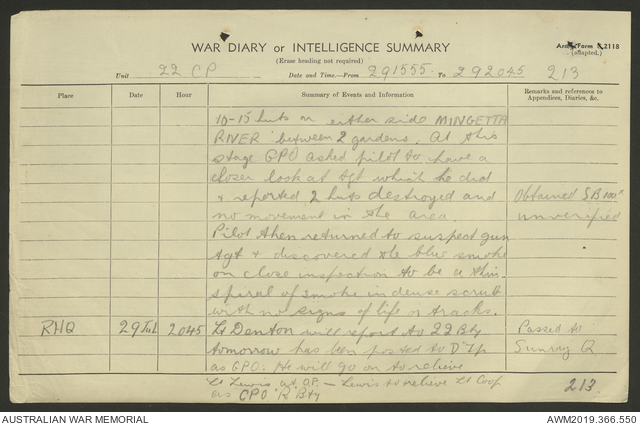 WAR DIARY or INTELLIGENCE SUMMARY
Army Form C 2118
(adapted.)
(Erase heading not required)
Unit 22 CP Date and Time—From 291555 To 292045 213
Place Date Hour Summary of Events and Information Remarks and references to Appendices, Diaries, &c.
10-15 huts on either side MINGETTA
RIVER between 2 gardens. At this
stage GPO asked pilot to have a
closer look at tgt which he did
+ reported 2 huts destroyed and Obtained SB 100"
no movement in the area. unverified
Pilot then returned to suspect gun
tgt + discovered the blue smoke
on close inspection to be a thin
spiral of smoke in dense scrub
with no signs of life or tracks.
RHQ 29 Jul 2045 Lt Denton will report to 22 Bty Passed to
tomorrow has been posted to D Tp Sunray Q
as GPO. He will go on to relieve
Lt Lewis at O.P. — Lewis to relieve Lt Coop
as CPO 'R' Bty 213
AUSTRALIAN WAR MEMORIAL AWM2019.366.550